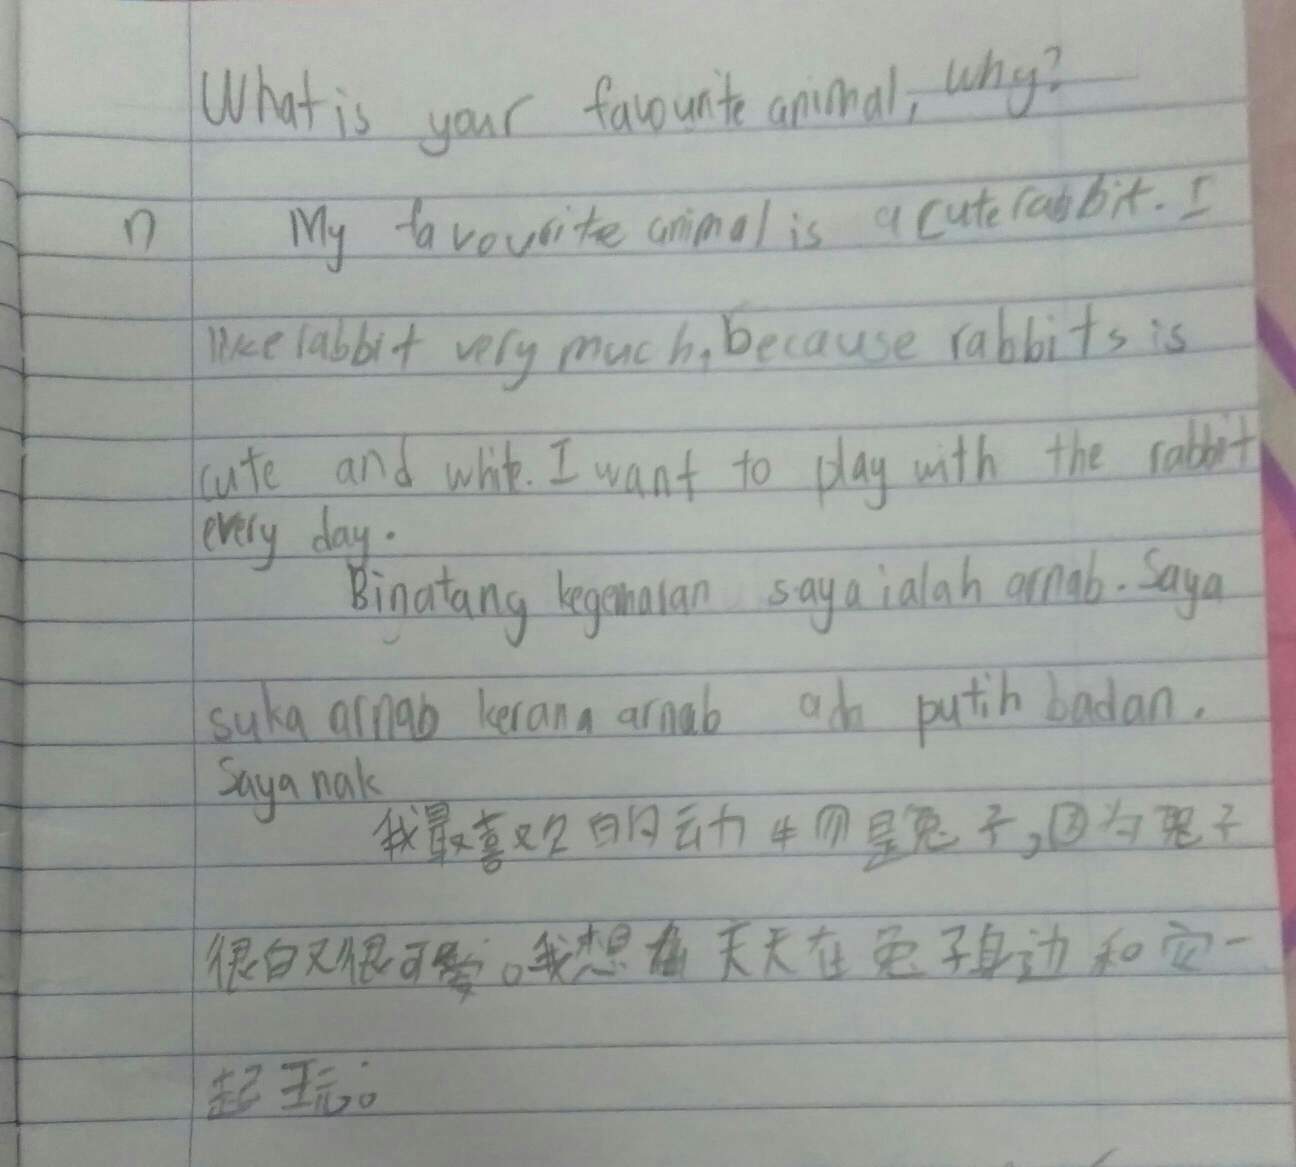 What is your favourite animal, why?
n My favourite animal is a cute rabbit. I
like rabbit very much, because rabbits is
cute and white. I want to play with the rabbit
every day.
Binatang kegemaran saya ialah arnab. Saya
suka arnab kerana arnab ada putih badan.
Saya nak
我最喜欢的动物是兔子,因为兔子
很白又很可爱。我想 天天在兔子身边和它一
起玩。